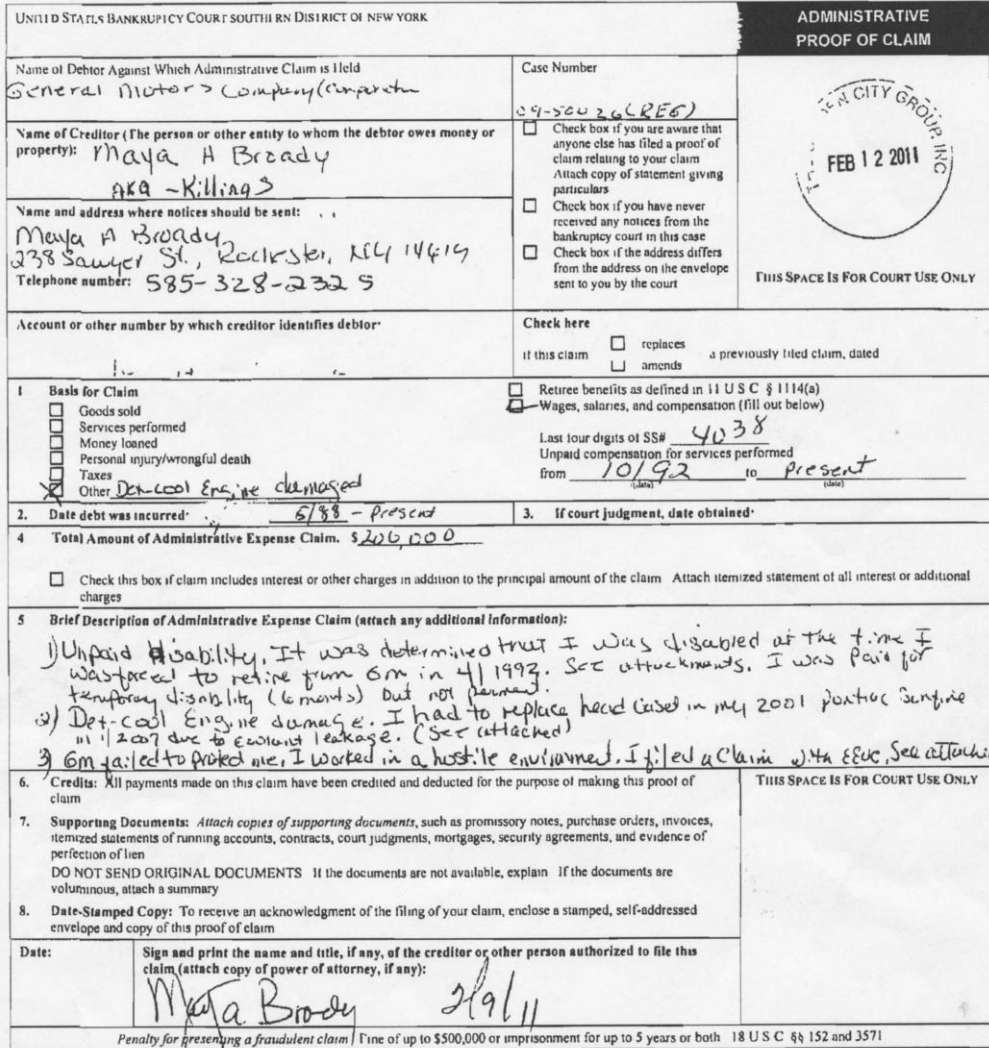 UNITED STATES BANKRUPTCY COURT SOUTHERN DISTRICT OF NEW YORK
ADMINISTRATIVE
PROOF OF CLAIM
Name of Debtor Against Which Administrative Claim is Held
General Motors Company (
Case Number
09-50026 (REG)
Name of Creditor (The person or other entity to whom the debtor owes money or
property): Maya A Broady
AKA - Killings
Name and address where notices should be sent:
Maya A Broady
238 Sawyer St., Rochester, NY 14619
Telephone number: 585-328-2325
Check box if you are aware that
anyone else has filed a proof of
claim relating to your claim
Attach copy of statement giving
particulars
Check box if you have never
received any notices from the
bankruptcy court in this case
Check box if the address differs
from the address on the envelope
sent to you by the court
CITY GROUP, INC
FEB 12 2011
THIS SPACE IS FOR COURT USE ONLY
Account or other number by which creditor identifies debtor:
Check here
if this claim
replaces
amends
a previously filed claim, dated
1 Basis for Claim
Goods sold
Services performed
Money loaned
Personal injury/wrongful death
Taxes
Other Det-cool Engine damaged
Retiree benefits as defined in 11 U S C § 1114(a)
Wages, salaries, and compensation (fill out below)
Last four digits of SS# 4038
Unpaid compensation for services performed
from 10/92 to present
(date) (date)
2. Date debt was incurred: 5/88 - Present
3. If court judgment, date obtained:
4 Total Amount of Administrative Expense Claim. $206,000
Check this box if claim includes interest or other charges in addition to the principal amount of the claim Attach itemized statement of all interest or additional
charges
5 Brief Description of Administrative Expense Claim (attach any additional information):
1) Unpaid disability. It was determined that I was disabled at the time I
was forced to retire from GM in 4/1992. See attachments. I was paid for
temporary disability (6 months) but not
2) Det-cool Engine damage. I had to replace head in my 2001 pontiac Sunfire
in 1/2007 due to leakage. (See attached)
3) GM failed to protect me, I worked in a hostile environment. I filed a Claim with EEOC, See
6. Credits: All payments made on this claim have been credited and deducted for the purpose of making this proof of
claim
THIS SPACE IS FOR COURT USE ONLY
7. Supporting Documents: Attach copies of supporting documents, such as promissory notes, purchase orders, invoices,
itemized statements of running accounts, contracts, court judgments, mortgages, security agreements, and evidence of
perfection of lien
DO NOT SEND ORIGINAL DOCUMENTS If the documents are not available, explain If the documents are
voluminous, attach a summary
8. Date-Stamped Copy: To receive an acknowledgment of the filing of your claim, enclose a stamped, self-addressed
envelope and copy of this proof of claim
Date:
Sign and print the name and title, if any, of the creditor or other person authorized to file this
claim (attach copy of power of attorney, if any):
Maya Broady 2/9/11
Penalty for presenting a fraudulent claim Fine of up to $500,000 or imprisonment for up to 5 years or both 18 U S C §§ 152 and 3571